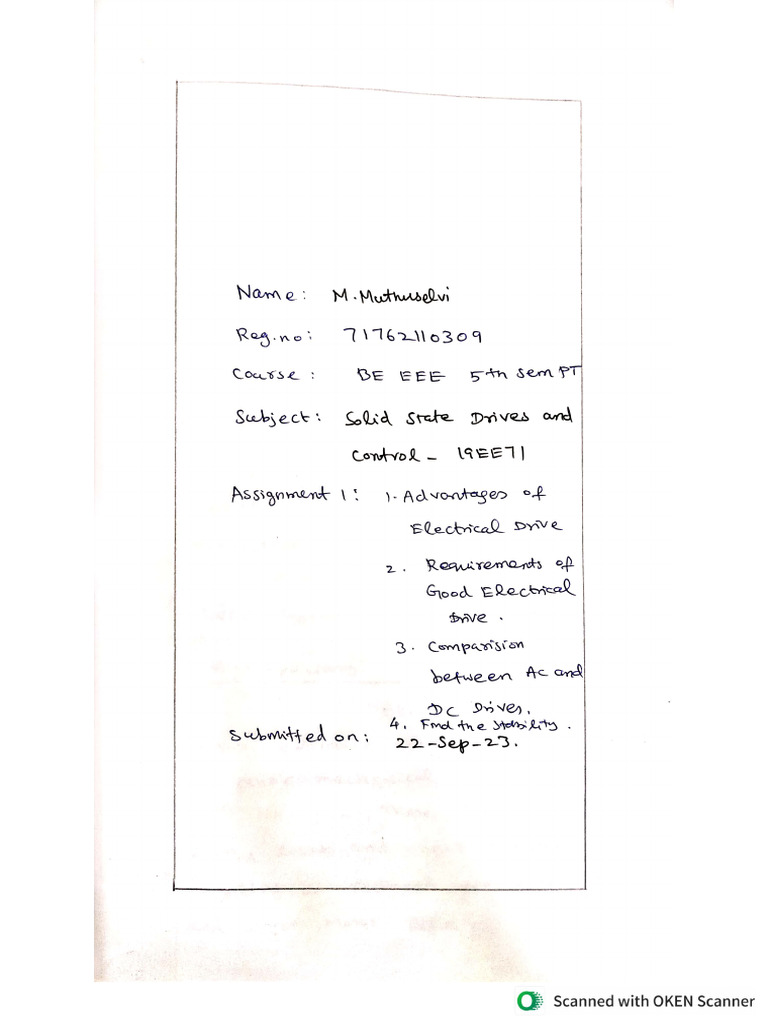 Name: M. Muthuselvi
Reg.no: 71762110309
Course: BE EEE 5th sem PT
Subject: Solid State Drives and
Control - 19EE71
Assignment 1: 1. Advantages of
Electrical Drive
2. Requirements of
Good Electrical
Drive.
3. Comparision
between AC and
DC Drives.
4. Find the stability.
Submitted on: 22-Sep-23.
Scanned with OKEN Scanner